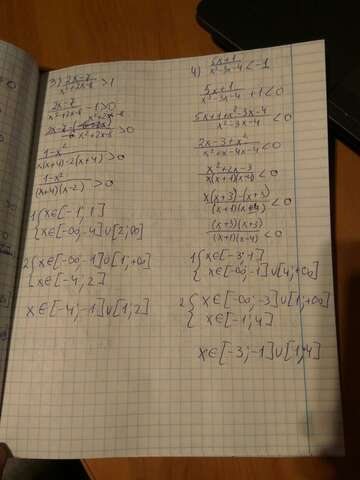 3) (2x-7)/(x²+2x-8) > 1
(2x-7)/(x²+2x-8) - 1 > 0
(1-x²)/(x(x+4)-2(x+4)) > 0
(1-x²)/((x+4)(x-2)) > 0
1 { x∈[-1; 1]
{ x∈[-∞; -4]∪[2; ∞]
2 { x∈[-∞; -1]∪[1; +∞]
{ x∈[-4; 2]
x∈[-4; -1]∪[1; 2]
4) (5x+1)/(x²-3x-4) < -1
(5x+1)/(x²-3x-4) + 1 < 0
(5x+1+x²-3x-4)/(x²-3x-4) < 0
(2x-3+x²)/(x²+x-4x-4) < 0
(x²+2x-3)/(x(x+1)(x-4)) < 0
(x(x+3)-(x+3))/((x+1)(x-4)) < 0
((x+3)(x+3))/((x+1)(x-4)) < 0
1 { x∈[-3; 1]
{ x∈[-∞; -1]∪[4; +∞]
2 { x∈[-∞; -3]∪[1; +∞]
{ x∈[-1; 4]
x∈[-3; -1]∪[1; 4]